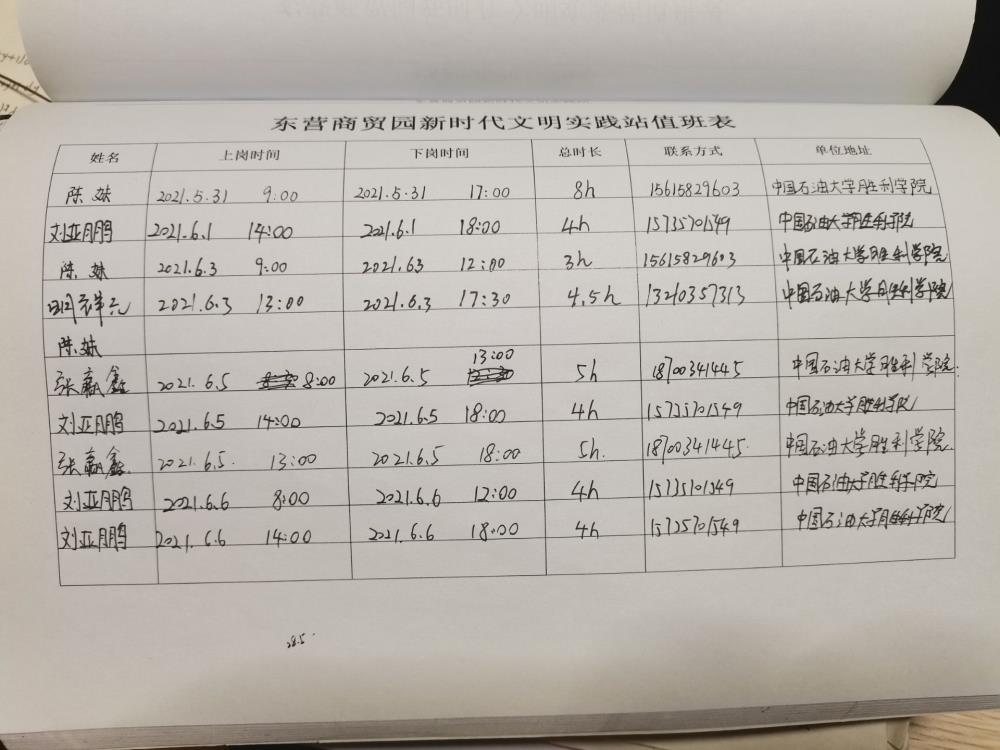 东营商贸园新时代文明实践站值班表
姓名 上岗时间 下岗时间 总时长 联系方式 单位地址
陈妹 2021.5.31 9:00 2021.5.31 17:00 8h 15615829603 中国石油大学胜利学院
刘亚鹏 2021.6.1 14:00 2021.6.1 18:00 4h 15735701549 中国石油大学胜利学院
陈妹 2021.6.3 9:00 2021.63 12:00 3h 15615829603 中国石油大学胜利学院
2021.6.3 13:00 2021.6.3 17:30 4.5h 13210357313 中国石油大学胜利学院
陈妹
13:00
张赢鑫 2021.6.5 8:00 2021.6.5 5h 18700341445 中国石油大学胜利学院
刘亚鹏 2021.6.5 14:00 2021.6.5 18:00 4h 15735701549 中国石油大学胜利学院
张赢鑫 2021.6.5. 13:00 2021.6.5 18:00 5h. 18700341445. 中国石油大学胜利学院.
刘亚鹏 2021.6.6 8:00 2021.6.6 12:00 4h 15735701549 中国石油大学胜利学院
刘亚鹏 2021.6.6 14:00 2021.6.6 18:00 4h 15735701549 中国石油大学胜利学院
28.5